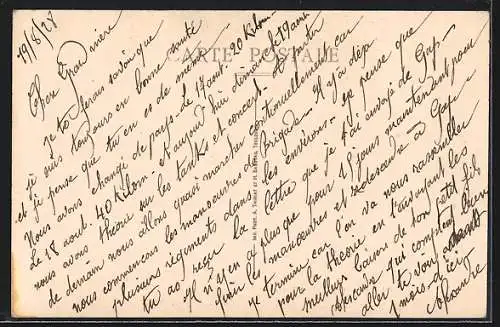 19/8/28
CARTE POSTALE
Chère Grand mère
Je te ferais savoir que
je suis toujours en bonne santé
et je pense que tu en es de même
Nous avons changé de pays. Le 17 aout. 20 Kilom.
Le 18 aout. 40 Kilom. Aujourd'hui dimanche 19 aout
nous avons théorie sur les tanks et concert.
de demain nous allons quasi marcher continuellement car
nous commençons les manœuvres de
plusieurs régiments dans la brigade. Il y a déjà
tu as reçu la lettre que je t'ai envoyé de Gap.
Il n'y en a plus que pour 15 jours maintenant pour
finir les manœuvres et redescendre à Gap.
je termine car l'on va nous rassembler
pour la théorie en t'envoyant les
meilleurs baisers de ton petit fils
qui compte bien
aller te voir avant
1 mois d'ici